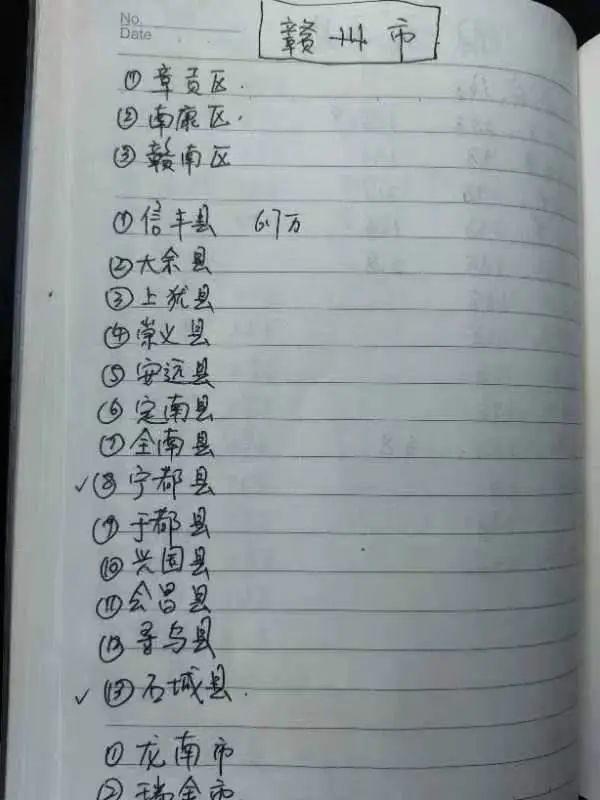 No.
Date
赣州市
① 章贡区.
② 南康区.
③ 赣南区
① 信丰县 6.7万
② 大余县
③ 上犹县
④ 崇义县
⑤ 安远县
⑥ 定南县
⑦ 全南县
✓ ⑧ 宁都县
⑨ 于都县
⑩ 兴国县
⑪ 会昌县
⑫ 寻乌县
✓ ⑬ 石城县.
① 龙南市
② 瑞金市